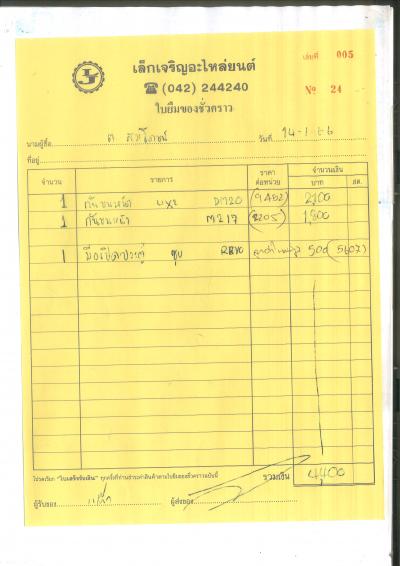 เล็กเจริญอะไหล่ยนต์
☎ (042) 244240
ใบยืมของชั่วคราว
เล่มที่ 005
№ 24
นามผู้ซื้อ วันที่ 14-1-66
ที่อยู่
จำนวน รายการ ราคาต่อหน่วย จำนวนเงิน บาท สต.
1 กันชนหลัง DM20 (9A02) 2,100
1 กันชนหน้า M217 (2205) 1,800
1 มือเปิดประตู ชุบ RBYO 500 (5607)
โปรดเรียก "ใบเสร็จรับเงิน" ทุกครั้งที่ท่านชำระค่าสินค้าตามใบยืมของชั่วคราวฉบับนี้
รวมเงิน 4,400
ผู้รับของ ผู้ส่งของ